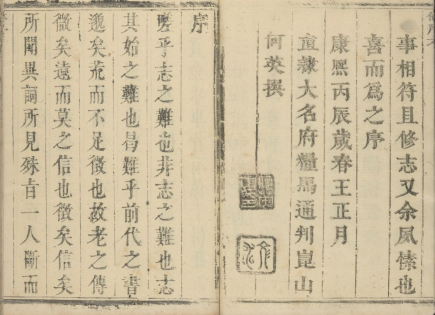 事相符且修志又余夙愫也
喜而為之序
康熙丙辰歲春王正月
直隸大名府糧馬通判崑山
何英撰
序
嗟乎志之難也非志之難也志
其始之難也曷難乎前代之書
邈矣荒而不足徵也故老之傳
微矣遠而莫之信也徵矣信矣
所聞異詞所見殊旨一人斷而